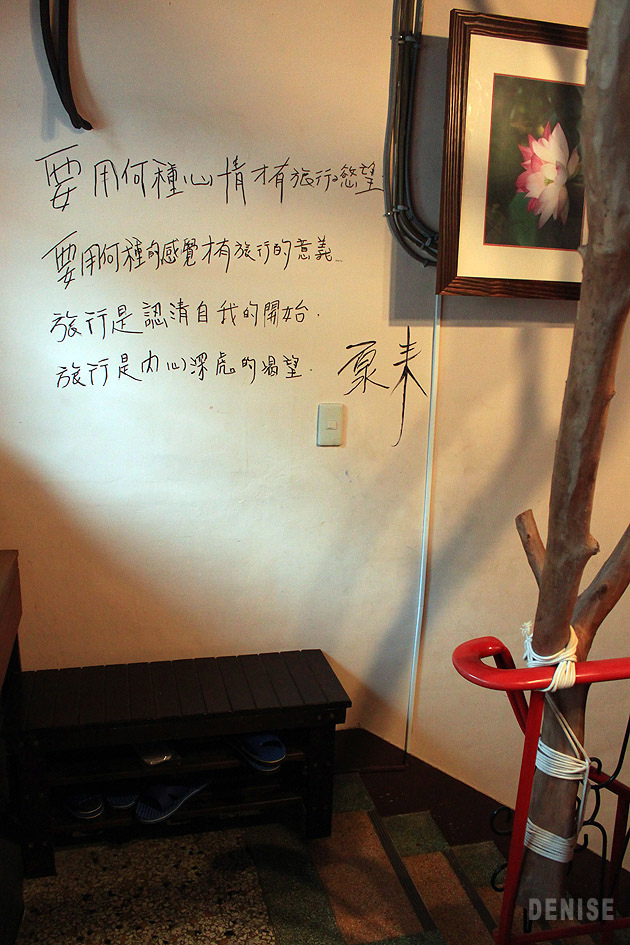 要用何種心情才有旅行之慾望
要用何種的感覺才有旅行的意義...
旅行是認清自我的開始.
旅行是內心深處的渴望.
DENISE